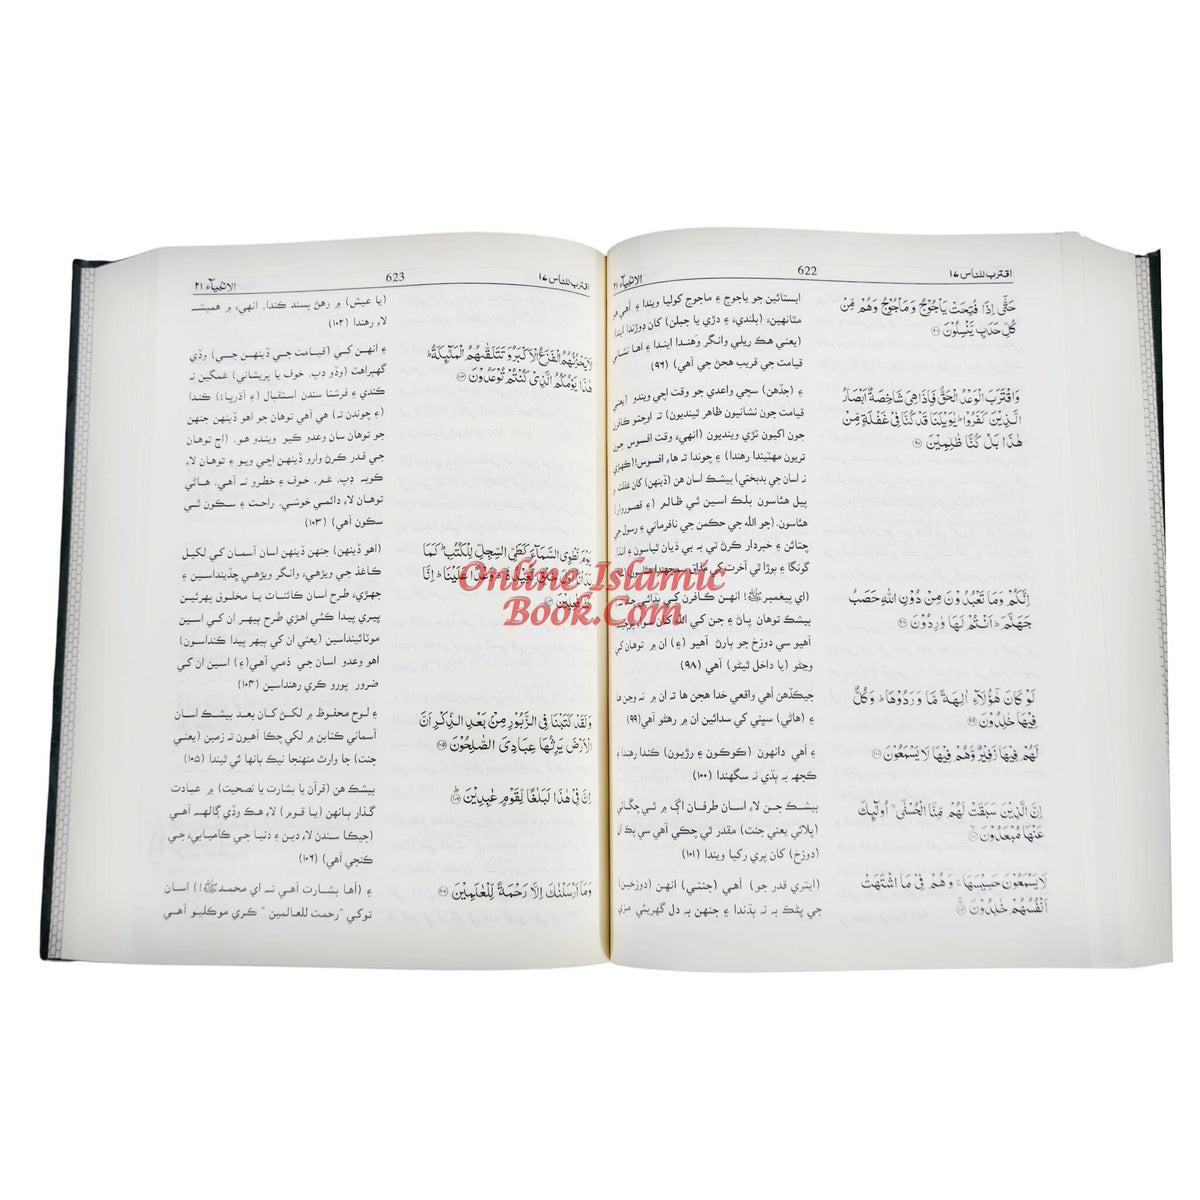 اقترب للناس ١٧
622
الانبياء ٢١
حَتّٰۤى اِذَا فُتِحَتْ يَاْجُوْجُ وَمَاْجُوْجُ وَهُمْ مِّنْ
كُلِّ حَدَبٍ يَّنْسِلُوْنَ
وَاقْتَرَبَ الْوَعْدُ الْحَقُّ فَاِذَا هِىَ شَاخِصَةٌ اَبْصَارُ
الَّذِيْنَ كَفَرُوْا يٰوَيْلَنَا قَدْ كُنَّا فِىْ غَفْلَةٍ مِّنْ
هٰذَا بَلْ كُنَّا ظٰلِمِيْنَ
اِنَّكُمْ وَمَا تَعْبُدُوْنَ مِنْ دُوْنِ اللّٰهِ حَصَبُ
جَهَنَّمَ اَنْتُمْ لَهَا وٰرِدُوْنَ
لَوْ كَانَ هٰٓؤُلَآءِ اٰلِهَةً مَّا وَرَدُوْهَا وَكُلٌّ
فِيْهَا خٰلِدُوْنَ
لَهُمْ فِيْهَا زَفِيْرٌ وَّهُمْ فِيْهَا لَا يَسْمَعُوْنَ
اِنَّ الَّذِيْنَ سَبَقَتْ لَهُمْ مِّنَّا الْحُسْنٰٓى اُولٰٓئِكَ
عَنْهَا مُبْعَدُوْنَ
لَا يَسْمَعُوْنَ حَسِيْسَهَا وَهُمْ فِىْ مَا اشْتَهَتْ
اَنْفُسُهُمْ خٰلِدُوْنَ
ايستائين جو ياجوج ۽ ماجوج کوليا ويندا ۽ اُهي
مٿانهين، (بلنديءَ ۽ دڙي يا جبلن) کان ڊوڙندا ايندا
(يعني هڪ ريلي وانگر وَهندا ايندا ۽ اها نشاني
قيامت جي قريب هجڻ جي آهي) (٩٦)
۽ (جڏهن) سچي واعدي جو وقت اچي ويندو (يعني
قيامت جون نشانيون ظاهر ٿينديون) تہ اوچتو ڪافرن
جون اکيون تڙي وينديون (انهيءَ وقت افسوس جون
تريون مهٽيندا رهندا) ۽ چوندا تہ هاءِ افسوس! (ڪهڙي
نہ اسان جي بدبختي) بيشڪ اسان هن (ڏينهن) کان غفلت ۾
پيل هئاسون بلڪ اسين ئي ظالم (۽ قصوروار)
هئاسون. (جو الله جي حڪمن جي نافرماني ۽ رسول جي
چتائڻ ۽ خبردار ڪرڻ تي بہ بي ڌيان ٿياسون ۽ انڌا
گونگا ۽ ٻوڙا ٿي آخرت کي مذاق سمجهندا هئاسون)
(اي پيغمبرﷺ! انهن ڪافرن کي ٻڌائي ڇڏ)
بيشڪ توهان پاڻ ۽ جن کي الله کان سواءِ
آهيو سي دوزخ جو ٻارڻ آهيو (۽) ان ۾ توهان کي
وڃڻو (يا داخل ٿيڻو) آهي (٩٨)
جيڪڏهن اُهي واقعي خدا هجن ها تہ ان ۾ نہ وڃن ها
۽ (هاڻي) سڀني کي سدائين ان ۾ رهڻو آهي(٩٩)
۽ اُهي دانهون (ڪوڪون ۽ رڙيون) ڪندا رهندا ۽
ڪجهہ بہ ٻڌي نہ سگهندا (١٠٠)
بيشڪ جن لاءِ اسان طرفان اڳ ۾ ئي چڱائي
(ڀلائي يعني جنت) مقدر ٿي چڪي آهي سي بڪ ان
(دوزخ) کان پري رکيا ويندا (١٠١)
(ايتري قدر جو) اُهي (جنتي) انهن (دوزخين)
جي ڀڻڪ بہ نہ ٻڌندا ۽ جنهن بہ دل گهريئي مزي
اقترب للناس ١٧
623
الانبياء ٢١
لَا يَحْزُنُهُمُ الْفَزَعُ الْاَكْبَرُ وَتَتَلَقّٰىهُمُ الْمَلٰٓئِكَةُ
هٰذَا يَوْمُكُمُ الَّذِىْ كُنْتُمْ تُوْعَدُوْنَ
يَوْمَ نَطْوِى السَّمَآءَ كَطَىِّ السِّجِلِّ لِلْكُتُبِ كَمَا
نُّعِيْدُهٗ وَعْدًا عَلَيْنَا اِنَّا
فٰعِلِيْنَ
وَلَقَدْ كَتَبْنَا فِى الزَّبُوْرِ مِنْۢ بَعْدِ الذِّكْرِ اَنَّ
الْاَرْضَ يَرِثُهَا عِبَادِىَ الصّٰلِحُوْنَ
اِنَّ فِىْ هٰذَا لَبَلٰغًا لِّقَوْمٍ عٰبِدِيْنَ
وَمَاۤ اَرْسَلْنٰكَ اِلَّا رَحْمَةً لِّلْعٰلَمِيْنَ
(يا عيش) ۾ رهڻ پسند ڪندا، انهيءَ ۾ هميشہ
لاءِ رهندا (١٠٢)
۽ انهن کي (قيامت جي ڏينهن جي) وڏي
گهٻراهٽ (وڏو ڊپ، خوف يا پريشاني) غمگين نہ
ڪندي ۽ فرشتا سندن استقبال (۽ آڌرڀاءُ) ڪندا
(۽ چوندن تہ) هي آهي توهان جو اهو ڏينهن جنهن
جو توهان سان وعدو ڪيو ويندو هو. (اڄ توهان
جي قدر ڪرڻ وارو ڏينهن اچي ويو ۽ توهان لاءِ
ڪوبہ ڊپ، غم، خوف ۽ خطرو نہ آهي. هاڻي
توهان لاءِ دائمي خوشي، راحت ۽ سڪون ئي
سڪون آهي) (١٠٣)
(اهو ڏينهن) جنهن ڏينهن اسان آسمان کي لکيل
ڪاغذ جي ويڙهيءَ وانگر ويڙهي ڇڏينداسين ۽
جهڙيءَ طرح اسان ڪائنات يا مخلوق پهرئين
ڀيري پيدا ڪئي اهڙي طرح ٻيهر ان کي
موٽائينداسين (يعني ان کي ٻيهر پيدا ڪنداسون)
اهو وعدو اسان جي ذمي آهي(۽) اسين ان کي
ضرور پورو ڪري رهنداسين (١٠٤)
۽ لوح محفوظ ۾ لکڻ کان بعد بيشڪ اسان
آسماني ڪتابن ۾ لکي چڪا آهيون تہ زمين (يعني
جنت) جا وارث منهنجا نيڪ ٻانها ئي ٿيندا (١٠٥)
بيشڪ هن (قرآن يا بشارت يا نصيحت) ۾ عبادت
گذار ٻانهن (يا قوم) لاءِ هڪ وڏي ڳالهہ آهي
(جيڪا سندن لاءِ دين ۽ دنيا جي ڪاميابيءَ جي
ڪنجي آهي) (١٠٦)
۽ (اُها بشارت آهي تہ اي محمدﷺ!) اسان
توکي "رحمت للعالمين" ڪري موڪليو آهي
Online Islamic
Book.Com